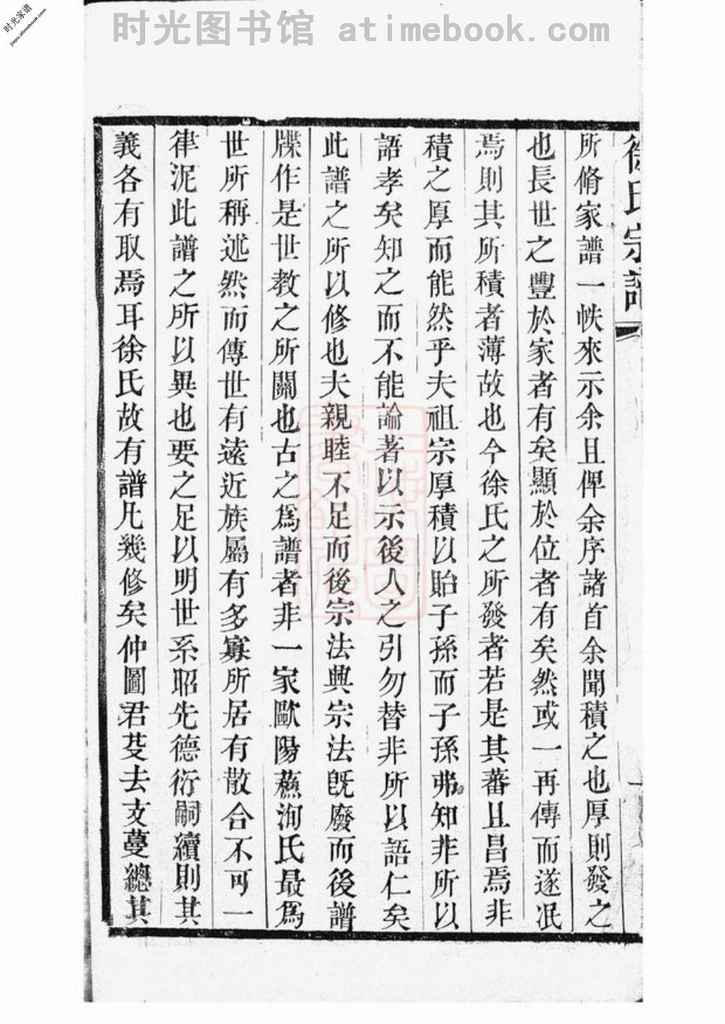 时光图书馆 atimebook.com
时光家谱
徐氏宗譜
所脩家譜一帙來示余且俾余序諸首余聞積之也厚則發之
也長世之豐於家者有矣顯於位者有矣然或一再傳而遂泯
焉則其所積者薄故也今徐氏之所發者若是其蕃且昌焉非
積之厚而能然乎夫祖宗厚積以貽子孫而子孫弗知非所以
語孝矣知之而不能論著以示後人之引勿替非所以語仁矣
此譜之所以修也夫親睦不足而後宗法興宗法旣廢而後譜
牒作是世教之所關也古之爲譜者非一家歐陽蘇洵氏最爲
世所稱述然而傳世有遠近族屬有多寡所居有散合不可一
律泥此譜之所以異也要之足以明世系昭先德衍嗣續則其
義各有取焉耳徐氏故有譜凡幾修矣仲圖君芟去支蔓總其